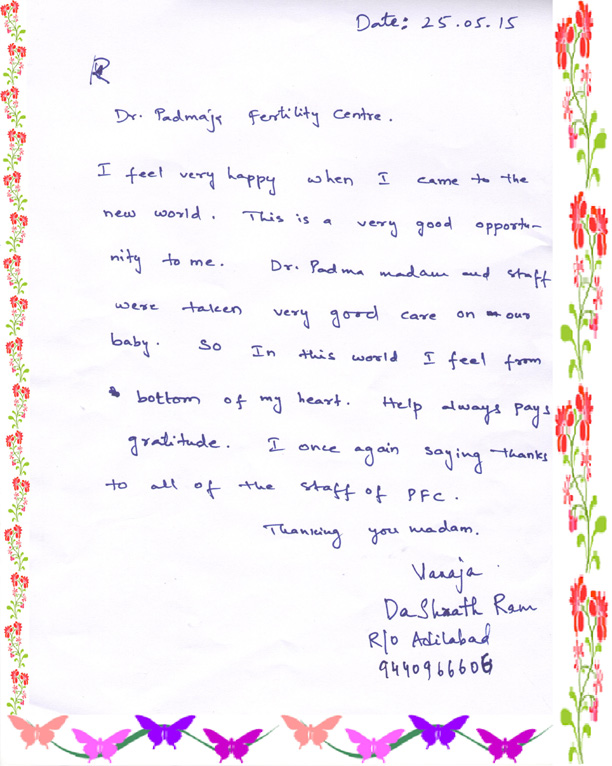 Date: 25.05.15
Dr. Padmaja Fertility Centre.
I feel very happy when I came to the
new world. This is a very good opportu-
nity to me. Dr. Padma madam and staff
were taken very good care on our
baby. So In this world I feel from
bottom of my heart. Help always pays
gratitude. I once again saying thanks
to all of the staff of PFC.
Thanking you madam.
Vanaja
Dashrath Ram
R/O Adilabad
9440966606